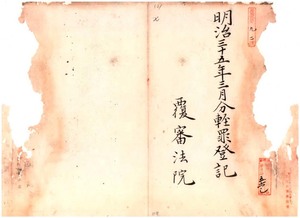 明治三十五年三月分輕罪登記
覆審法院